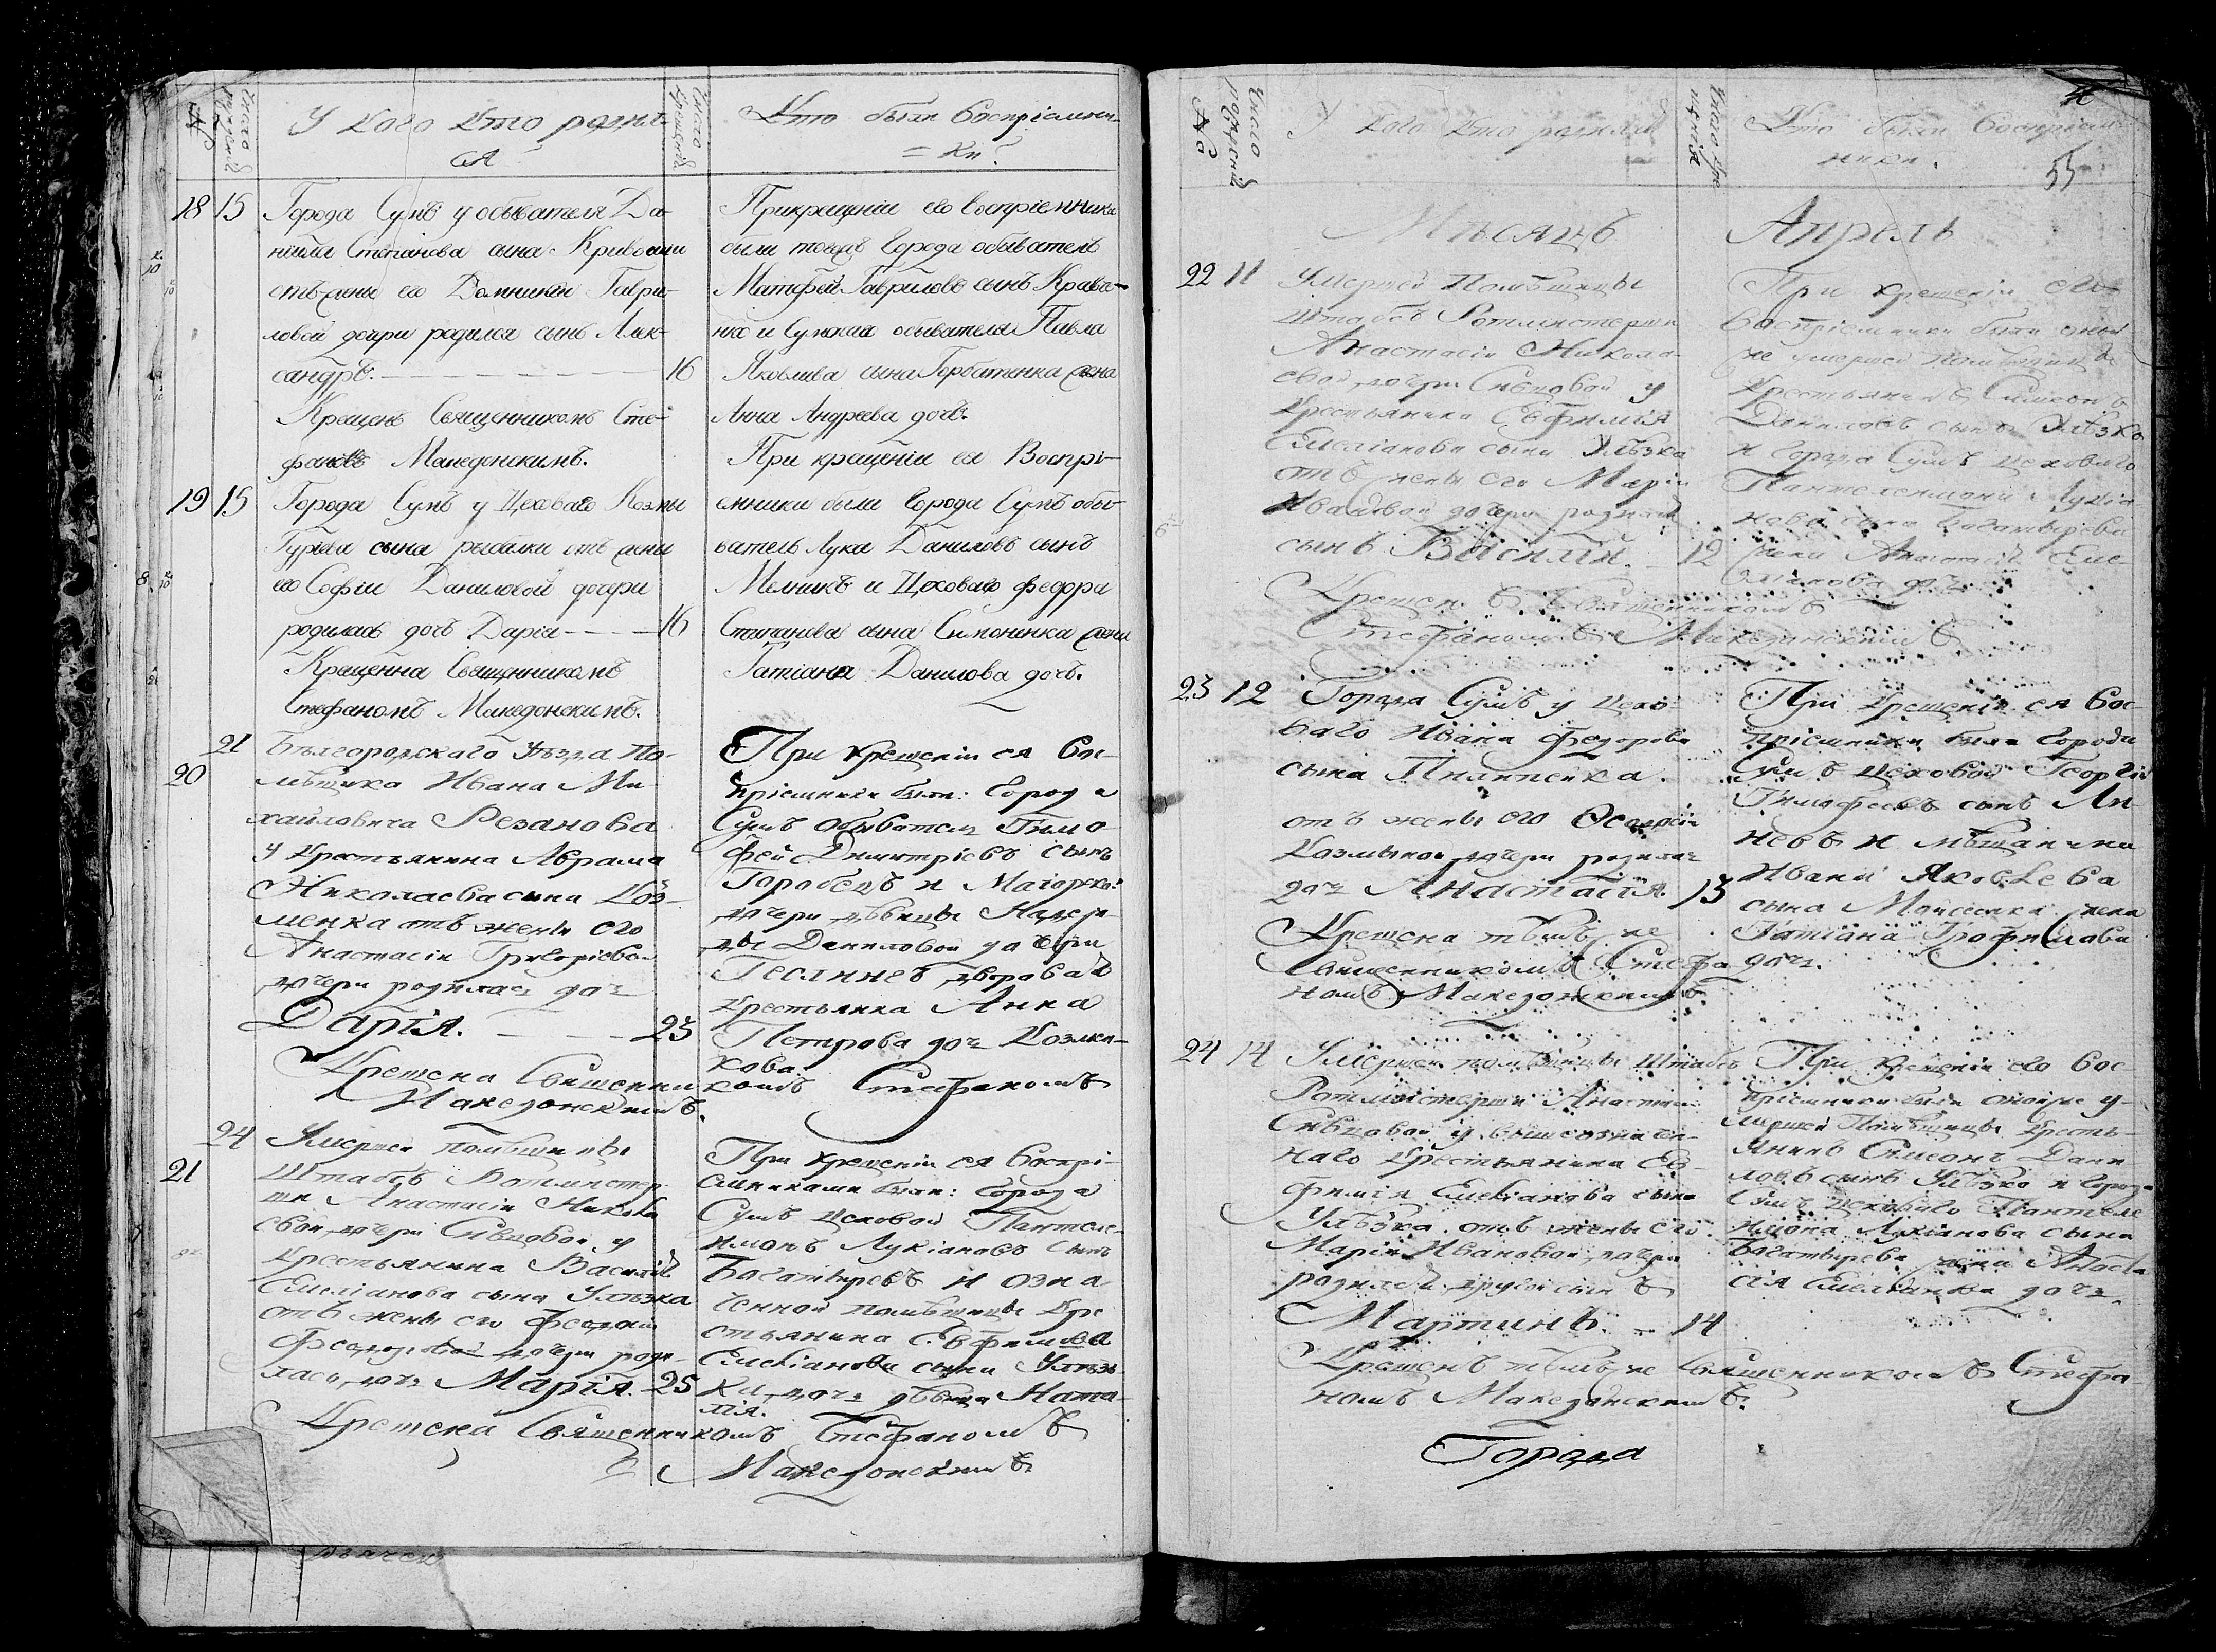 №
Число рожденій
У кого кто родил-
ся
Число крещеній
Кто были воспріемни-
= ки.
18 15 Города Сумъ у обывателя Да-
ніила Степанова сына Кривоши
отъ жены его Домникіи Гаври-
ловой дочери родился сынъ Алек-
сандръ. 16
Крещенъ Священникомъ Сте-
фаномъ Македонскимъ.
Прикрещеніи его воспріемники
были тогожъ Города обыватель
Матфей Гавриловъ сынъ Крава-
нко и Сумскаго обывателя Павла
Яковлева сына Горбатенка жена
Анна Андреева дочь.
19 15 Города Сумъ у Цеховаго Козмы
Гуріева сына рыбалки отъ жены
его Софіи Даниловой дочери
родилась дочь Дарія 16
Крещенна Священникомъ
Стефаномъ Македонскимъ.
При крещеніи ея Воспрі-
емники были Города Сумъ обы-
ватель Лука Даниловъ сынъ
Мелникъ и Цеховаго федора
Степанова сына Симоненка жена
Татіана Данилова дочь.
20 21 Бѣлгородскаго уѣзда По-
мѣщика Ивана Ми-
хайловича Резанова
у крестьянина Абрама
Николаева сына Коз-
менка отъ жены его
Анастасіи Григоріево
дочери родилась дочь
Дарія. 23
Крещена Священни
комъ Стефаномъ
Македонскимъ.
При крещеніи ея вос-
пріемники были: Города
Сумъ обыватель Тимо-
фей Димитріевъ сынъ
Горобецъ и Маіорской
дочери дѣвицы Надеж-
ды Даниловой дочери
дворовая
крестьянка Анна
Петрова дочь Козми-
кова.
21 24 Умершей помѣщицы
Штабсъ Ротмистер
ши Анастасіи Никола
евой дочери Сивцовой у
крестьянина Василія
Емеліанова сына Улѣзка
отъ жены его Феодосіи
Феодоровой дочери роди-
лась дочь Марія. 25
Крещена Священникомъ Стефаномъ
Македонскимъ
При крещеніи ея воспрі-
емниками были: Города
Сумъ цеховой Пантеле-
имонъ Лукіановъ сынъ
Богатыревъ и озна
ченной помѣщицы кре
стьянина Евфимова
Емеліанова сына Улѣз-
ка дочь дѣвица Ната-
лія.
№
Число рожденій
У кого кто родился
Число кре
щеній
Кто были воспріем
ники.
55
Мѣсяцъ Апрель
22 11 Умершей Помѣщицы
Штабсъ Ротмистерши
Анастасіи Никола-
евой дочери Сивцовой у
крестьянина Евфимія
Емеліанова сына Улѣзка
отъ жены его Маріи
Ивановой дочери родился
сынъ Василій. 12
Крещенъ Священникомъ
Стефаномъ Македонскимъ
При крещеніи его
воспріемники были оной
же умершей помѣщицы
крестьянинъ Симеонъ
Даниловъ сынъ Улѣзко
и Города Сумъ цеховаго
Пантелеимона Лукіа-
нова сына Богатырева
жена Анастасія Еме-
ліанова дочь
23 12 Города Сумъ у цехо-
ваго Ивана Федорова
сына Пилипенка
отъ жены его Феодосіи
Козминой дочери родилась
дочь Анастасія. 13
Крещена тѣмъ же
Священникомъ Стефа
номъ Македонскимъ.
При крещеніи ея вос-
пріемники были Города
Сумъ цеховой Георгій
Тимофеевъ сынъ Ли-
невъ и мѣщанина
Ивана Яковлева
сына Моисеенка жена
Татіана Трофимова
дочь.
24 14 Умершей помѣщицы Штабсъ
Ротмистерши Анастасіи
Сивцовой у вышеозначен-
наго крестьянина Ев-
фимія Емеліанова сына
Улѣзка отъ жены его
Маріи Ивановой дочери
родился другой сынъ
Мартинъ. 14
Крещенъ тѣмъ же Священникомъ Стефа
номъ Македонскимъ.
При крещеніи его вос-
пріемники были онойже у-
мершей Помѣщицы кресть-
янинъ Симеонъ Дани-
ловъ сынъ Улѣзко и Города
Сумъ цеховаго Пантеле
имона Лукіанова сына
Богатырева жена Анаста
сія Емеліанова дочь.
Города